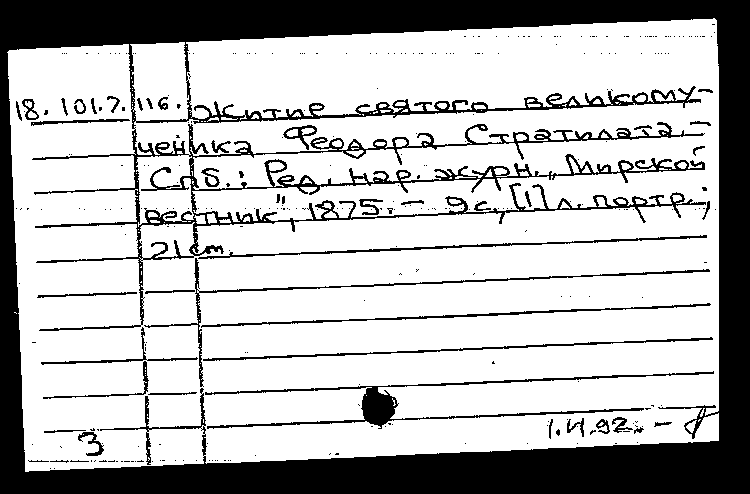 18. 101.7. 116. Житие святого великому-
ченика Феодора Стратилата. –
Спб.: Ред. нар. журн. „Мирской
вестник", 1875. – 9 с., [1] л. портр.;
21 см.
3
92. –